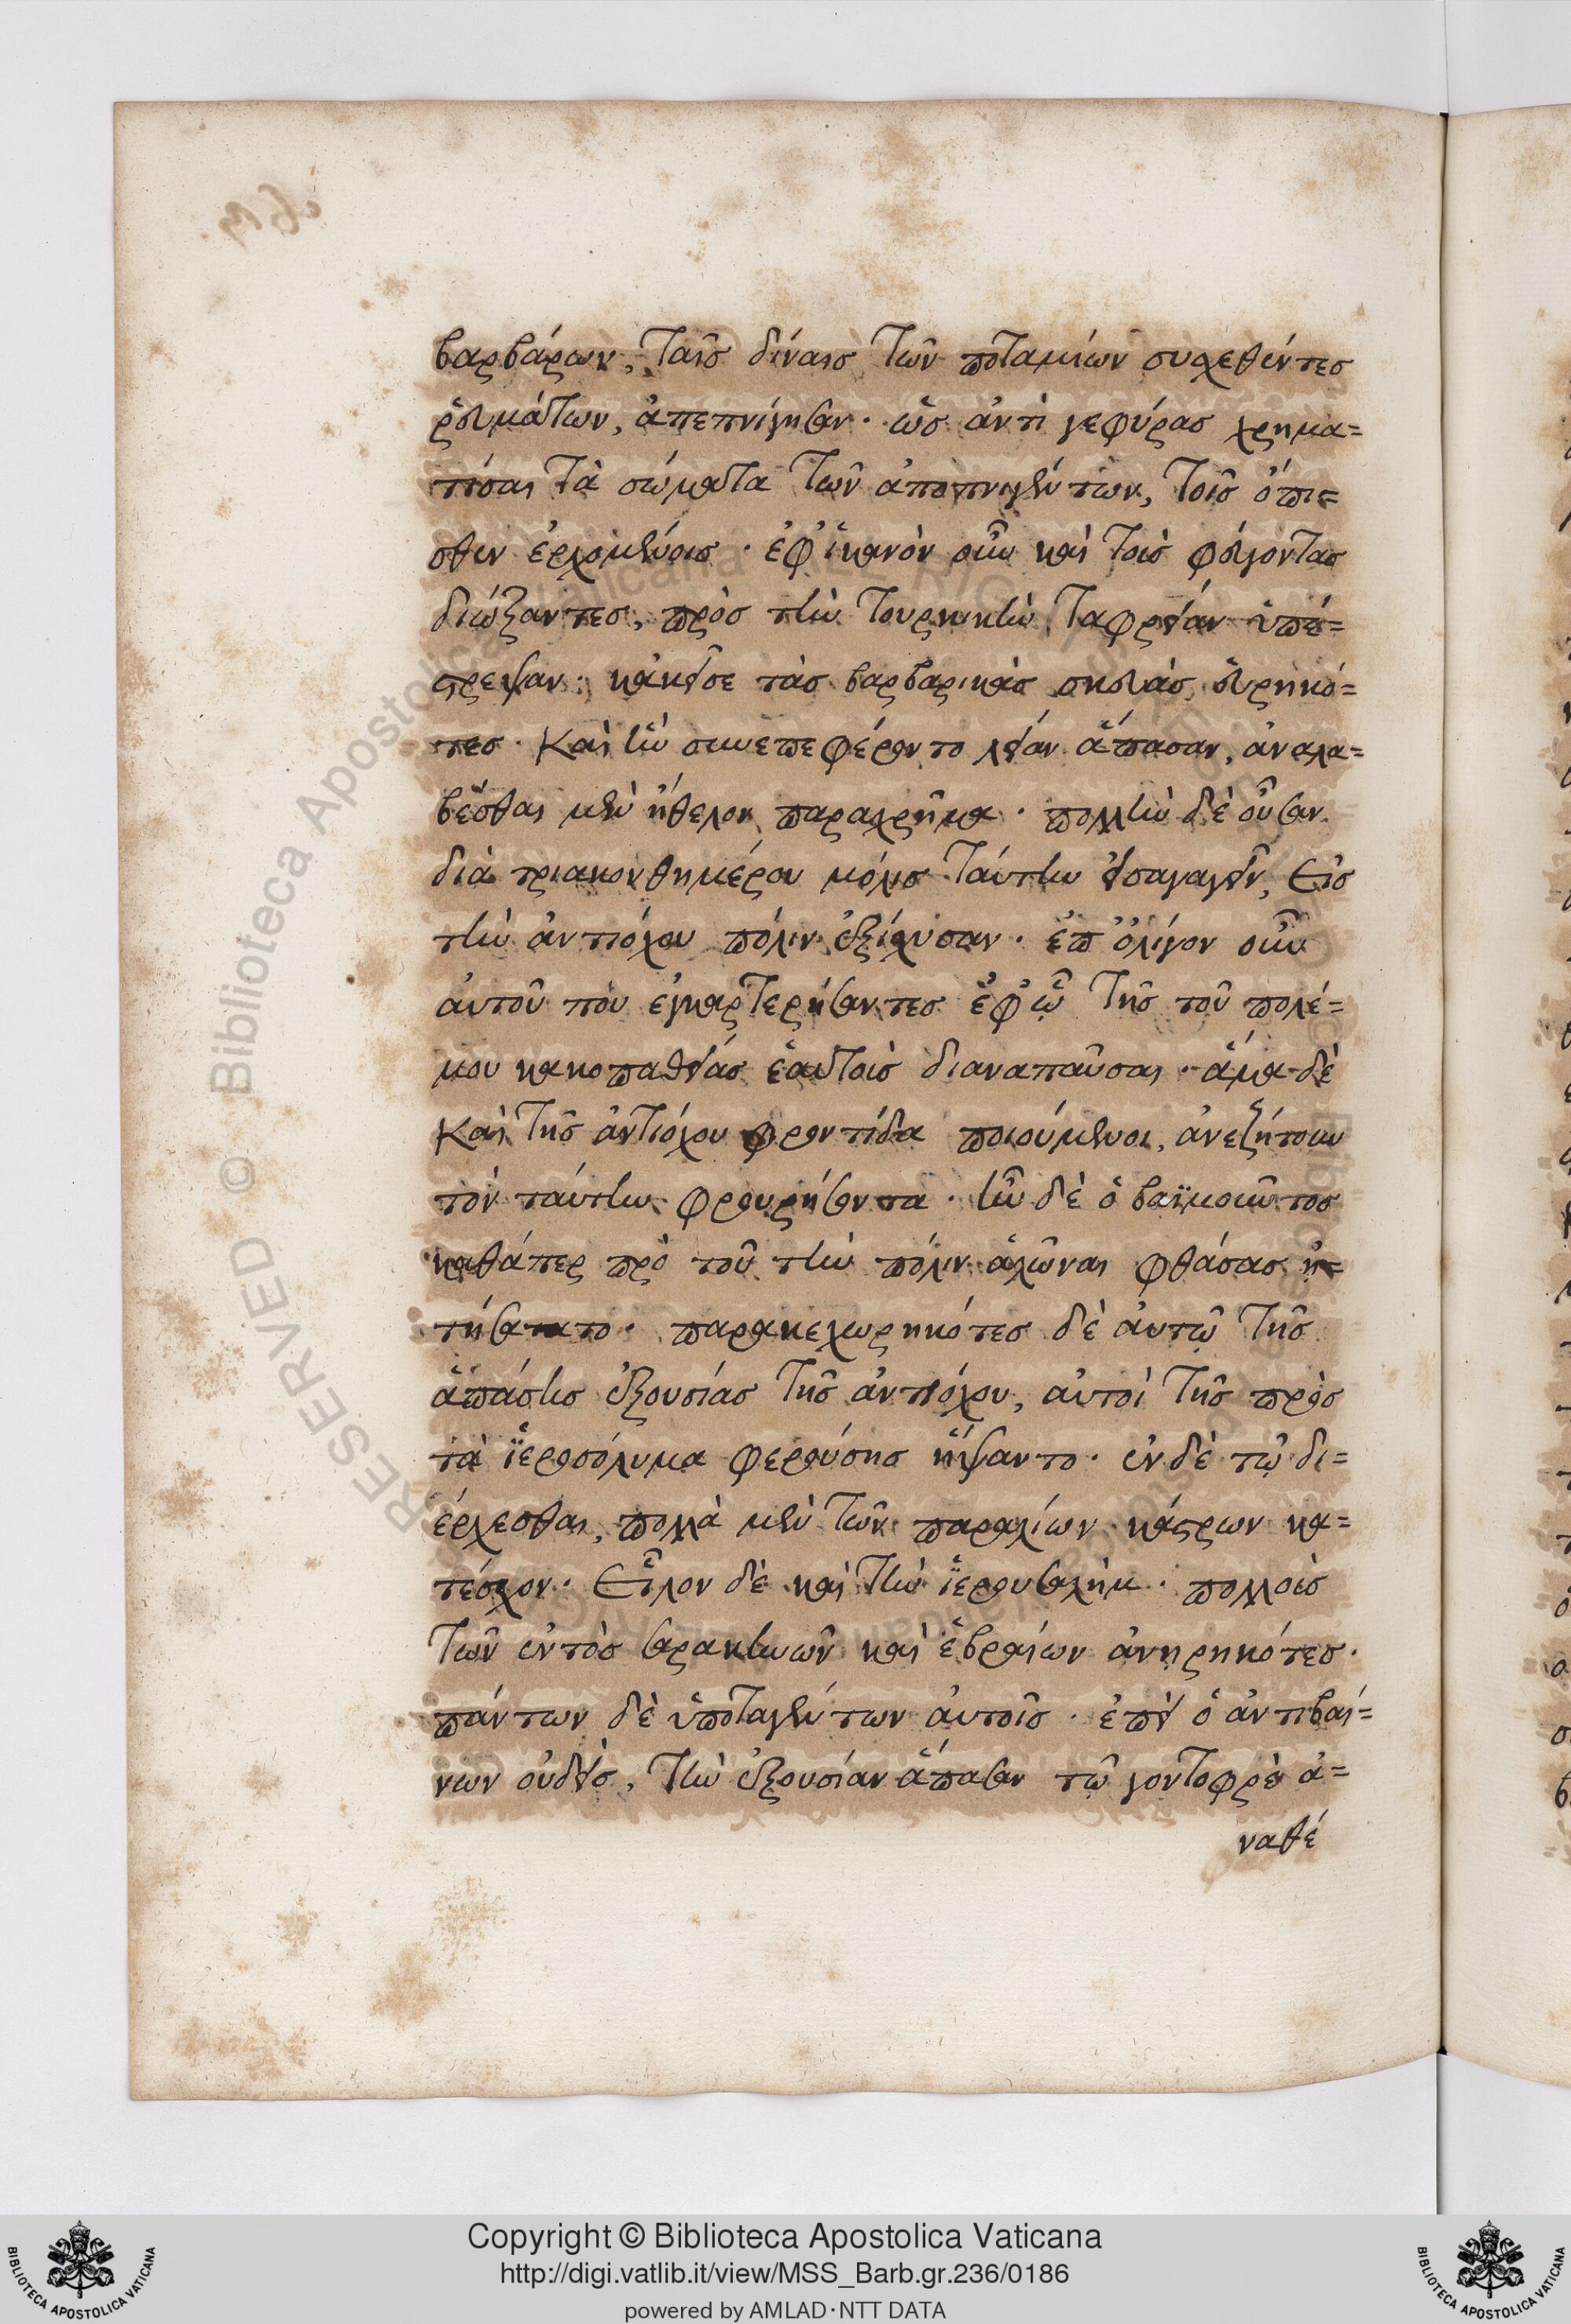 βαρβάρων, ταῖς δίναις τῶν ποταμίων συσχεθέντες
ῥευμάτων, ἀπεπνίγησαν· ὡς ἀντὶ γεφύρας χρημα=
τίσαι τὰ σώματα τῶν ἀποπνιγέντων, τοῖς ὄπι=
σθεν ἐρχομένοις· ἐφ' ἱκανὸν οὖν καὶ τοὺς φεύγοντας
διώξαντες, πρὸς τὴν τουρκικὴν ταφρείαν ὑπέ=
στρεψαν· κἀκεῖσε τὰς βαρβαρικὰς σκευὰς εὑρηκό=
τες· Καὶ ἣν συνεπεφέροντο λείαν ἅπασαν, ἀναλα=
βέσθαι μὲν ἤθελον παραχρῆμα· πολλὴν δὲ οὖσαν
διὰ τριακονθημέρου μόλις ταύτην εἰσαγαγεῖν, Εἰς
τὴν ἀντιόχου πόλιν ἐξίσχυσαν· ἐπ' ὀλίγον οὖν
αὐτοῦ που ἐγκαρτερήσαντες ἐφ' ᾧ τῆς τοῦ πολέ=
μου κακοπαθείας ἑαυτοὺς διαναπαῦσαι· ἅμα δὲ
Καὶ τῆς ἀντιόχου φροντίδα ποιούμενοι, ἀνεζήτουν
τὸν ταύτην φρουρήσοντα· ἦν δὲ ὁ βαϊμοῦντος
καθάπερ πρὸ τοῦ τὴν πόλιν ἁλῶναι φθάσας ᾐ=
τήσατο· παρακεχωρηκότες δὲ αὐτῷ τῆς
ἁπάσης ἐξουσίας τῆς ἀντιόχου, αὐτοὶ τῆς πρὸς
τὰ ἱεροσόλυμα φερούσης ἥψαντο· ἐν δὲ τῷ δι=
έρχεσθαι, πολλὰ μὲν τῶν παραλίων κάστρων κα=
τέσχον· Εἷλον δὲ καὶ τὴν ἱερουσαλὴμ· πολλοὺς
τῶν ἐντὸς σαρακηνῶν καὶ ἑβραίων ἀνῃρηκότες·
πάντων δὲ ὑποταγέντων αὐτοῖς· ἐπεὶ ὁ ἀντιβαί=
νων οὐδεὶς, τὴν ἐξουσίαν ἅπασαν τῷ γοντοφρὲ ἀ=
ναθέ
Copyright © Biblioteca Apostolica Vaticana
http://digi.vatlib.it/view/MSS_Barb.gr.236/0186
powered by AMLAD·NTT DATA